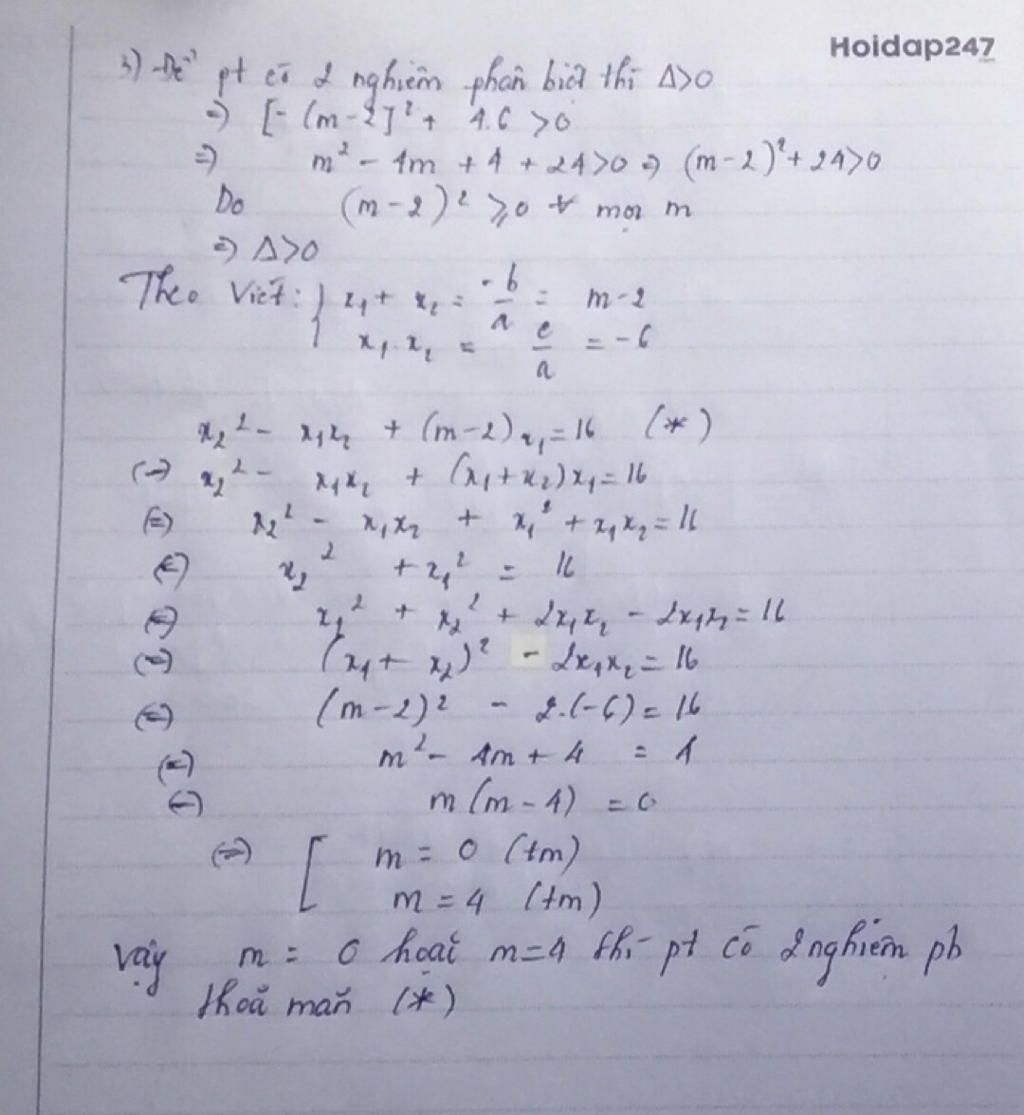 Hoidap247
3) Để pt có 2 nghiệm phân biệt thì Δ>0
=> [-(m-2]² + 4.6 >0
=> m² - 4m + 4 + 24>0 => (m-2)²+24>0
Do (m-2)² ≥0 ∀ mọi m
=> Δ>0
Theo Viét: { x₁ + x₂ = -b/a = m-2
x₁.x₂ = c/a = -6
x₂² - x₁x₂ + (m-2)x₁=16 (*)
(=) x₂² - x₁x₂ + (x₁+x₂)x₁=16
(=) x₂² - x₁x₂ + x₁² + x₁x₂=16
(=) x₂² + x₁² = 16
(=) x₁² + x₂² + 2x₁x₂ - 2x₁x₂=16
(=) (x₁+ x₂)² - 2x₁x₂=16
(=) (m-2)² - 2.(-6)=16
(=) m² - 4m + 4 = 4
(=) m(m-4) =0
(=) [ m = 0 (tm)
m = 4 (tm)
Vậy m = 0 hoặc m=4 thì pt có 2 nghiệm pb
thoả mãn (*)